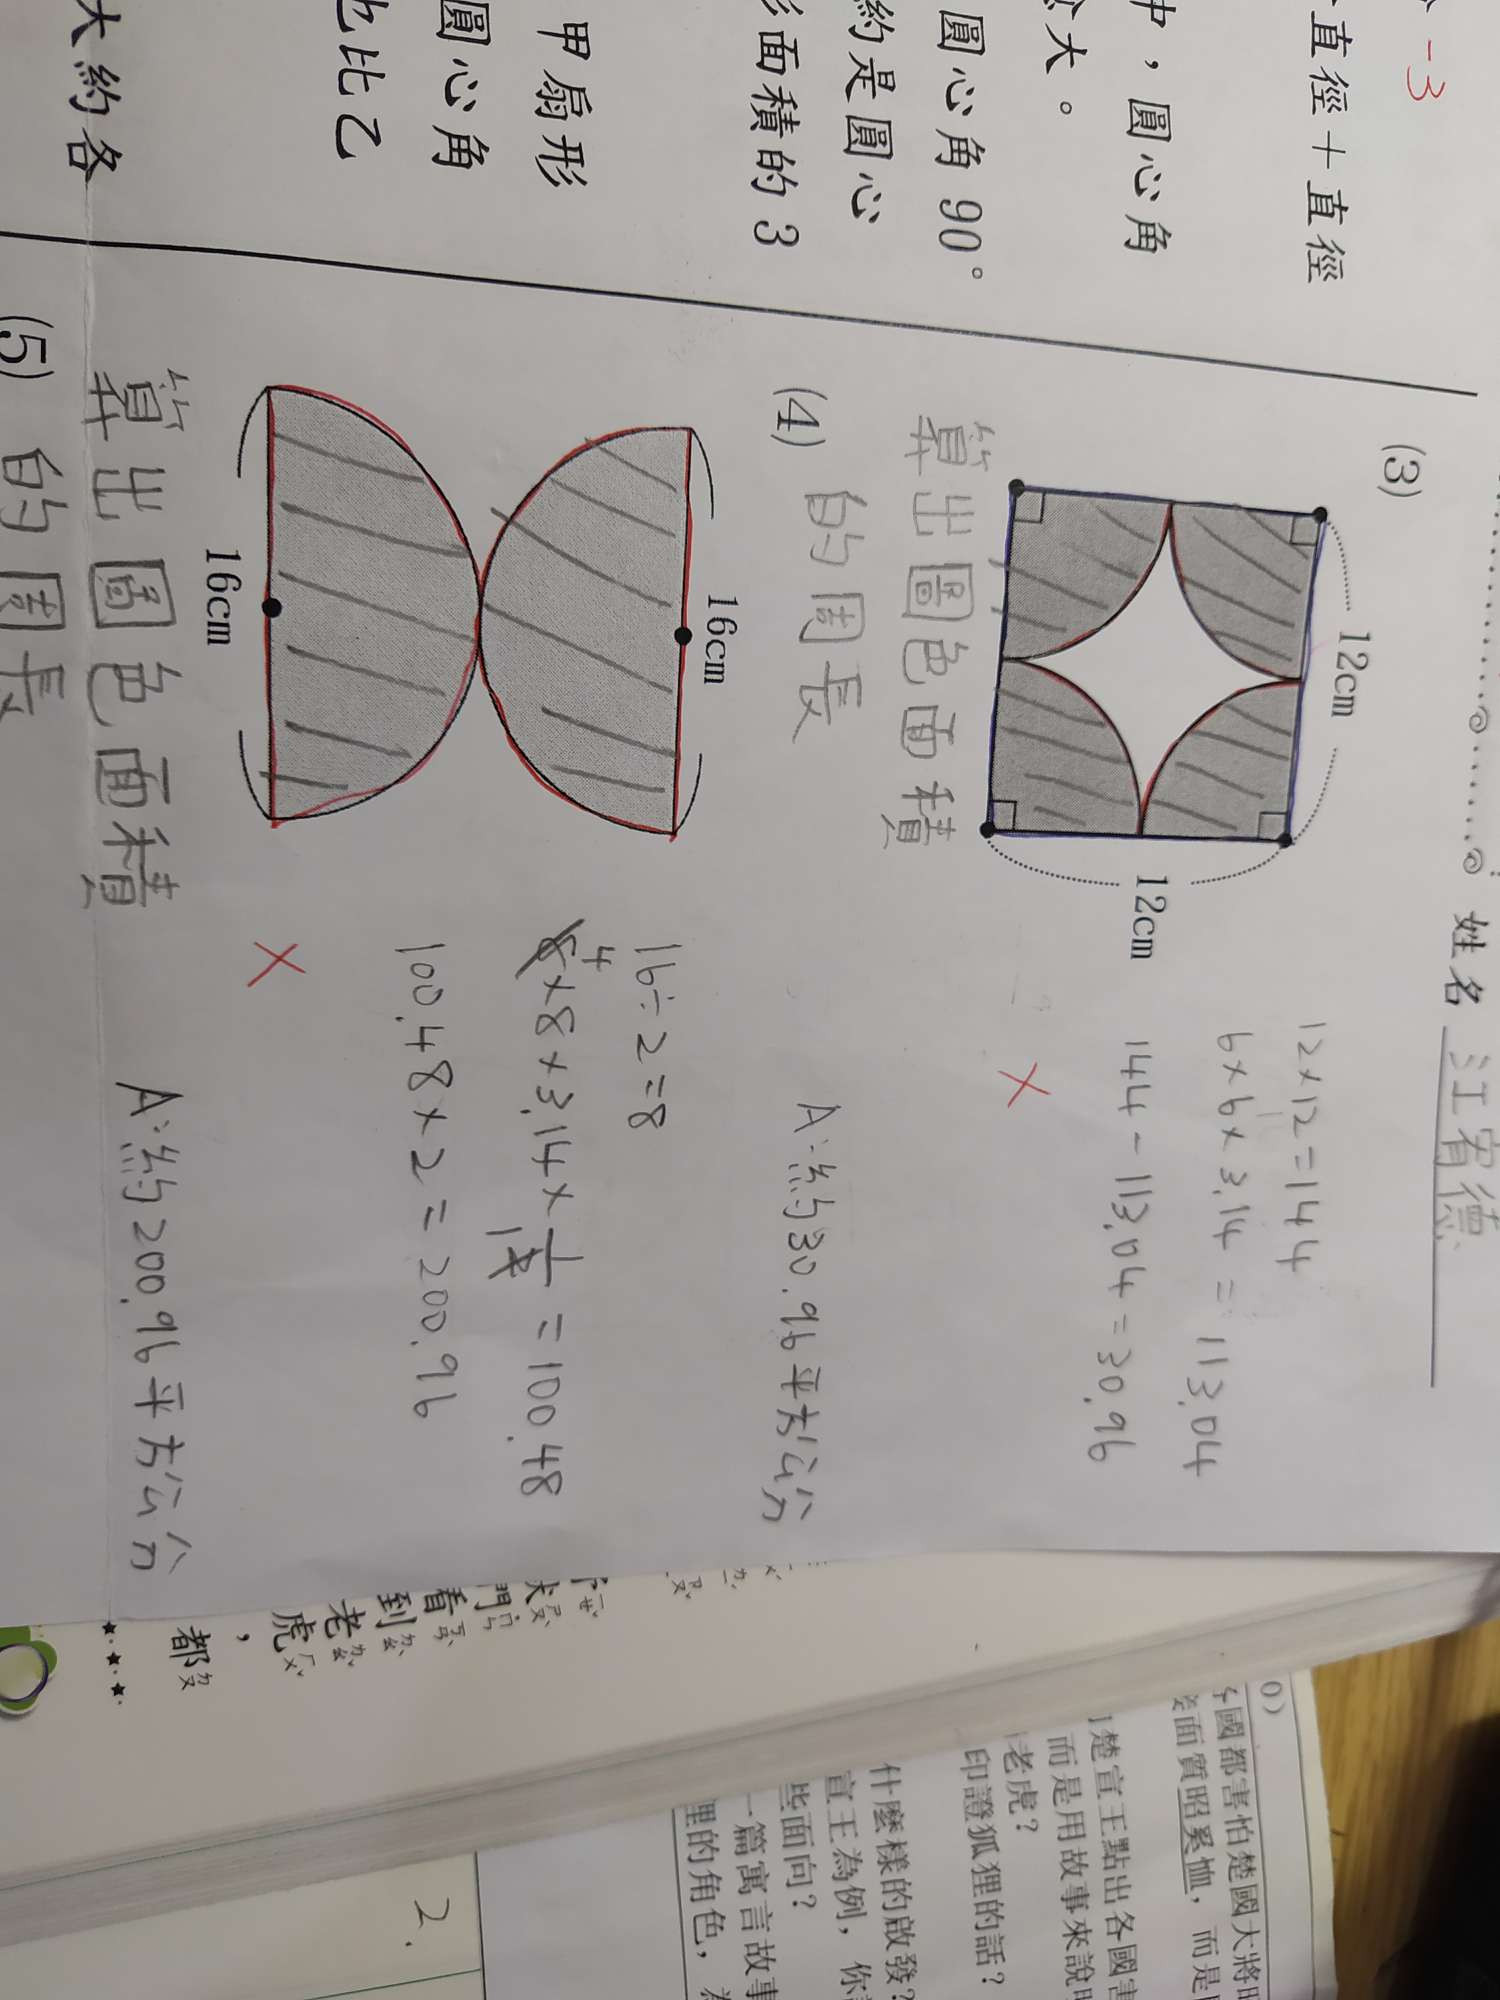 -3
直徑＋直徑
中，圓心角
大。
圓心角 90°
約是圓心
形面積的 3
甲扇形
圓心角
也比乙
大約各
姓名 江宥德
(3)
12cm
12cm
12×12=144
6×6×3.14=113.04
144-113.04=30.96
算出圖色面積
的周長
A:約30.96平方公分
(4)
16cm
16cm
16÷2=8
4
8×8×3.14×1/2=100.48
1
100.48×2=200.96
算出圖色面積
的周長
A:約200.96平方公分
(5)
門
看
到
老
虎
，
都
0)
國都害怕楚國大將昭
面質昭奚恤，而是
楚宣王點出各國害
而是用故事來說明
老虎？
印證狐狸的話？
什麼樣的啟發？
宣王為例，你
些面向？
一篇寓言故事
狸的角色，
2.